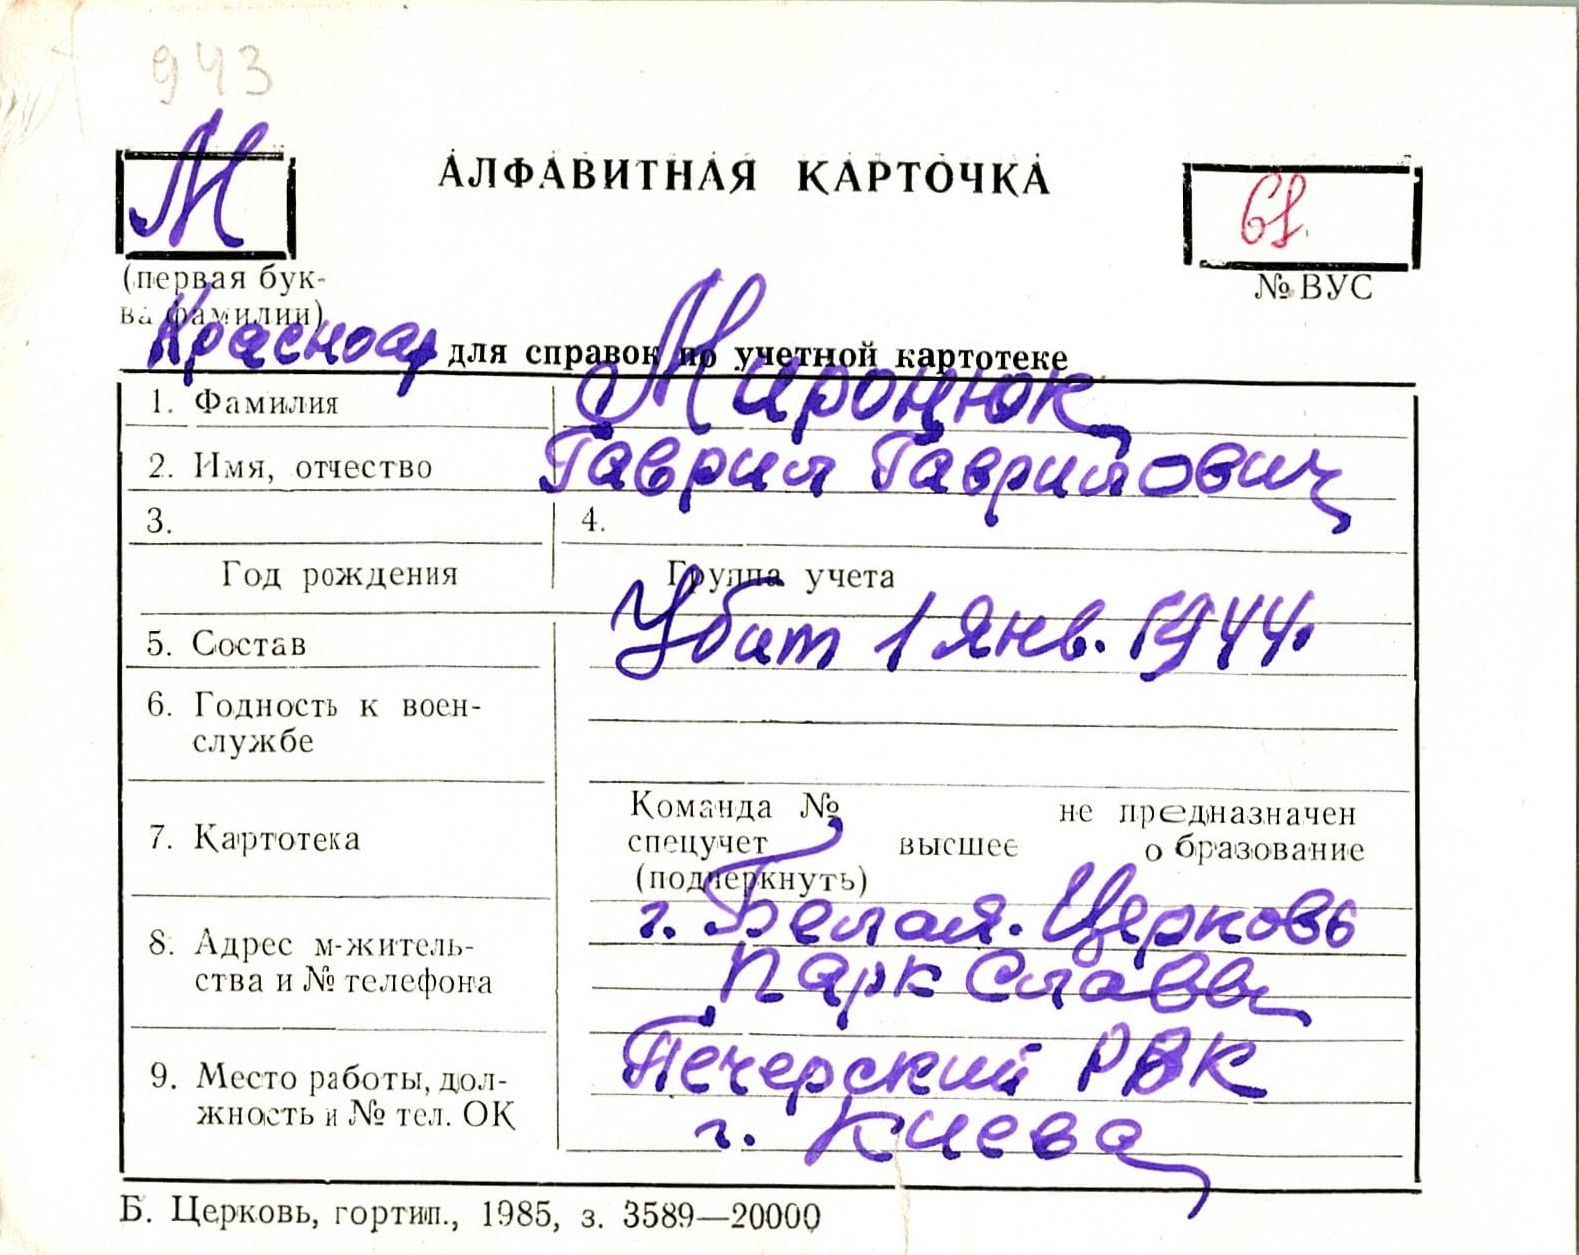 943
М
АЛФАВИТНАЯ КАРТОЧКА
(первая бук-
ва фамилии)
№ ВУС
Красноар
для справок по учетной картотеке
1. Фамилия Миронюк
2. Имя, отчество Гаврил Гаврилович
3. 4.
Год рождения Группа учета
5. Состав Убит 1 янв. 1944.
6. Годность к воен-
службе
7. Картотека
Команда № не предназначен
спецучет высшее образование
(подчеркнуть)
8. Адрес м-житель-
ства и № телефона
г. Белая-Церковь
Парк Славы
9. Место работы, дол-
жность и № тел. ОК
Печерский РВК
г. Киева
Б. Церковь, гортип., 1985, з. 3589—20000